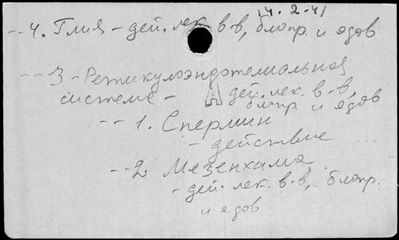 14.2-41
-- 4. Глия - дей. лек. в-в, блопр. и ядов
-- 3 - Ретикулоэндотелиальная
системе - дей. лек. в-в,
блопр. и ядов
-- 1. Спермин
- действие
-- 2 Мезенхима
- дей. лек. в-в, блопр.
и ядов